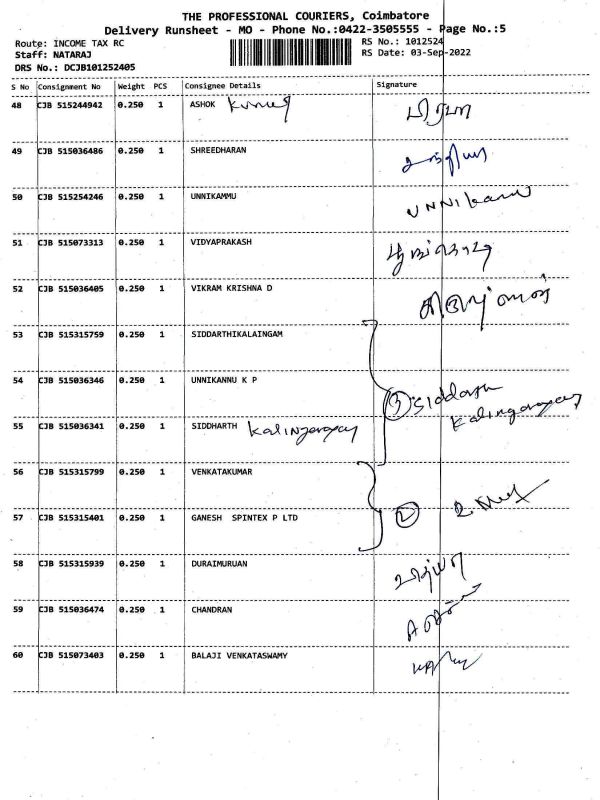 THE PROFESSIONAL COURIERS, Coimbatore
Delivery Runsheet - MO - Phone No.:0422-3505555 - Page No.:5
Route: INCOME TAX RC RS No.: 1012524
Staff: NATARAJ RS Date: 03-Sep-2022
DRS No.: DCJB101252405
S No Consignment No Weight PCS Consignee Details Signature
48 CJB 515244942 0.250 1 ASHOK Kumar பிரியா
49 CJB 515036486 0.250 1 SHREEDHARAN
50 CJB 515254246 0.250 1 UNNIKAMMU UNNikammu
51 CJB 515073313 0.250 1 VIDYAPRAKASH
52 CJB 515036405 0.250 1 VIKRAM KRISHNA D
53 CJB 515315759 0.250 1 SIDDARTHIKALAINGAM
54 CJB 515036346 0.250 1 UNNIKANNU K P 3 Siddarth
55 CJB 515036341 0.250 1 SIDDHARTH Kalingarayar Kalingarayar
56 CJB 515315799 0.250 1 VENKATAKUMAR
57 CJB 515315401 0.250 1 GANESH SPINTEX P LTD 2
58 CJB 515315939 0.250 1 DURAIMURUAN
59 CJB 515036474 0.250 1 CHANDRAN
60 CJB 515073403 0.250 1 BALAJI VENKATASWAMY